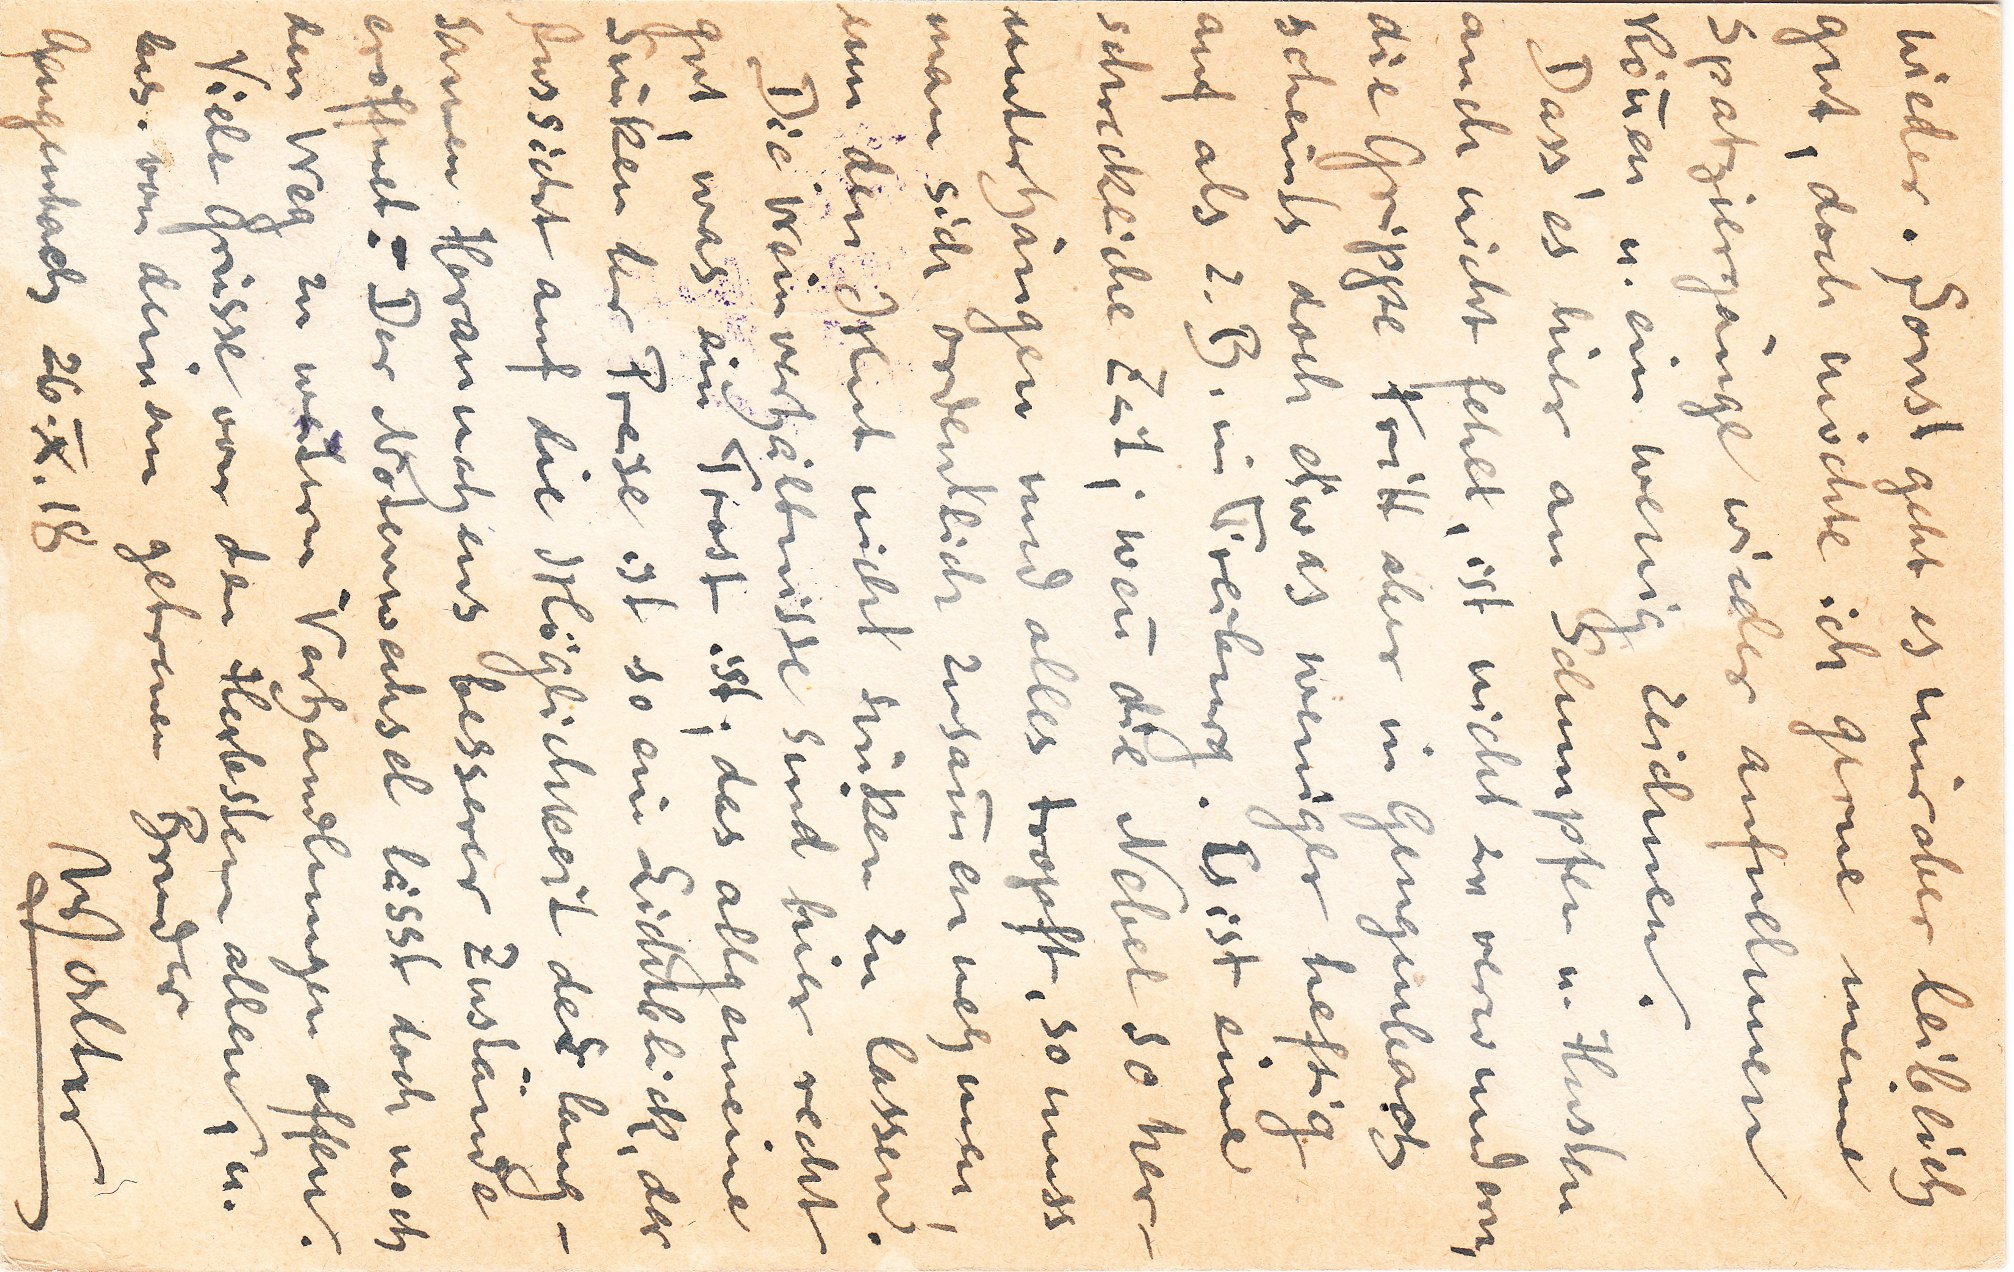 wieder. Sonst geht es mir aber leiblich
gut, doch möchte ich gerne meine
Spatziergänge wieder aufnehmen
Kön̄en u. ein wenig zeichnen.
Dass es hier an Schnupfen u. Husten
auch nicht fehlt, ist nicht zu verwundern,
die Grippe tritt aber in Gengenbach
scheints doch etwas weniger heftig
auf als z. B. in Freiburg. Es ist eine
schreckliche Zeit; wen̄ die Nebel so her-
unterhängen und alles tropft, so muss
man sich ordentlich zusam̄en nehmen,
um den Mut nicht sinken zu lassen.
Die Weinverhältnisse sind hier recht
gut, was ein Trost ist; das allgemeine
Sinken der Preise ist so ein Lichtblick, der
Fussicht auf die Möglichkeit des lang-
samen Herannahens besserer Zustände
eröffnet.- Der Notenwechsel lässt doch noch
den Weg zu weitern Verhandlungen offen.
Viele Grüsse von den Herbsten allen, u.
bes. von deinem getreuen Bruder
Gengenbach 26.X.18 Walter